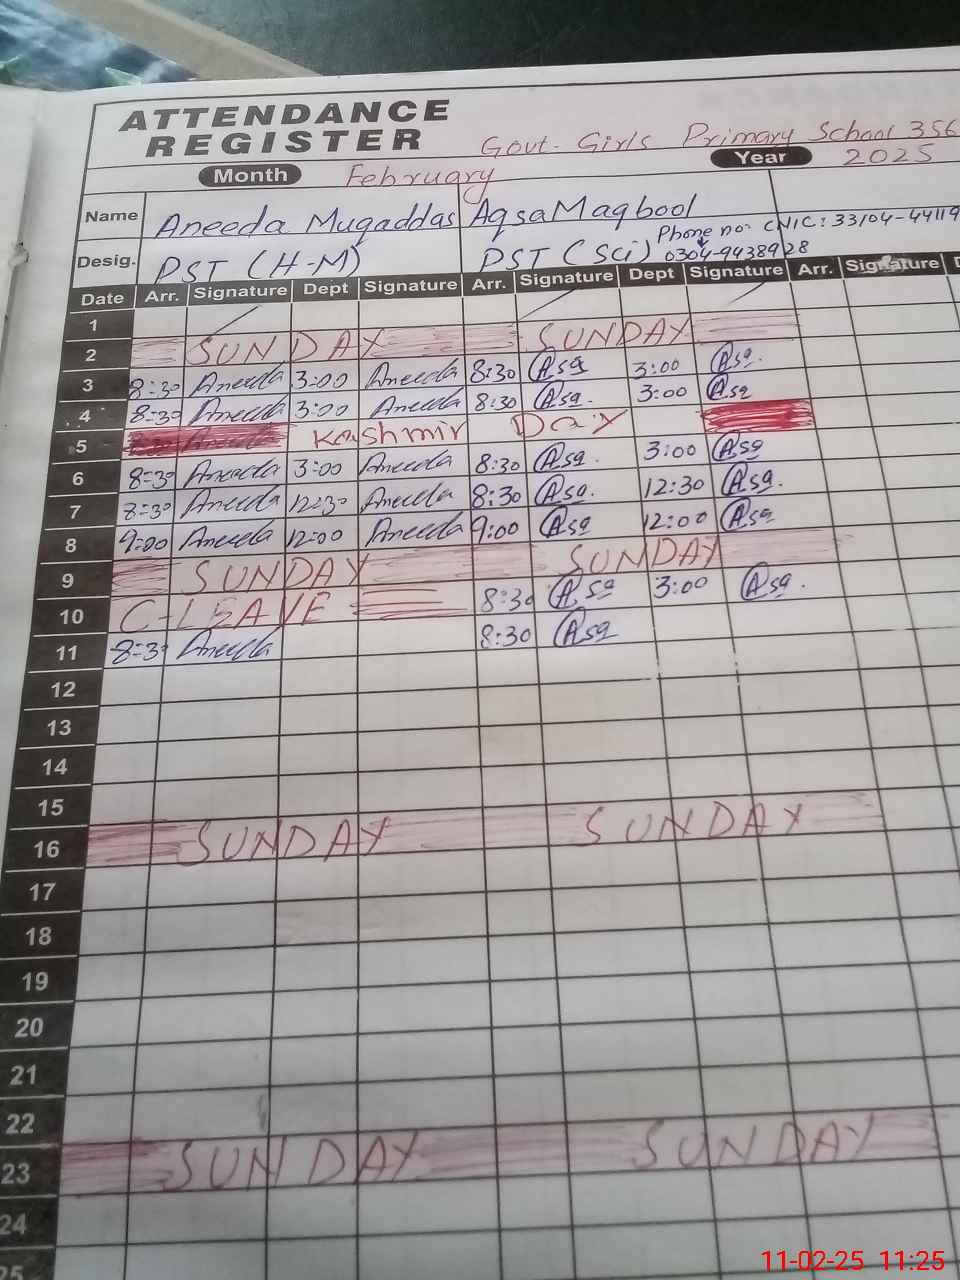 ATTENDANCE
REGISTER
Govt. Girls Primary School 356
Month February Year 2025
Name Aneeda Muqaddas Aqsa Maqbool
Phone no. CNIC: 33104-44119
Desig. PST (H-M) PST (Sci) 0304-9438928
Date Arr. Signature Dept Signature Arr. Signature Dept Signature Arr. Signature D
1
2 SUNDAY SUNDAY
3 8:30 Aneeda 3:00 Aneeda 8:30 Asq 3:00 Asq.
4 8:30 Aneeda 3:00 Aneeda 8:30 Asq. 3:00 Asq
5 Kashmir Day
6 8:30 Aneeda 3:00 Aneeda 8:30 Asq. 3:00 Asq
7 8:30 Aneeda 12:30 Aneeda 8:30 Asq. 12:30 Asq.
8 9:00 Aneeda 12:00 Aneeda 9:00 Asq 12:00 Asq
9 SUNDAY SUNDAY
10 C-LEAVE 8:30 Asq 3:00 Asq.
11 8:30 Aneeda 8:30 Asq
12
13
14
15
16 SUNDAY SUNDAY
17
18
19
20
21
22
23 SUNDAY SUNDAY
24
25
11-02-25 11:25